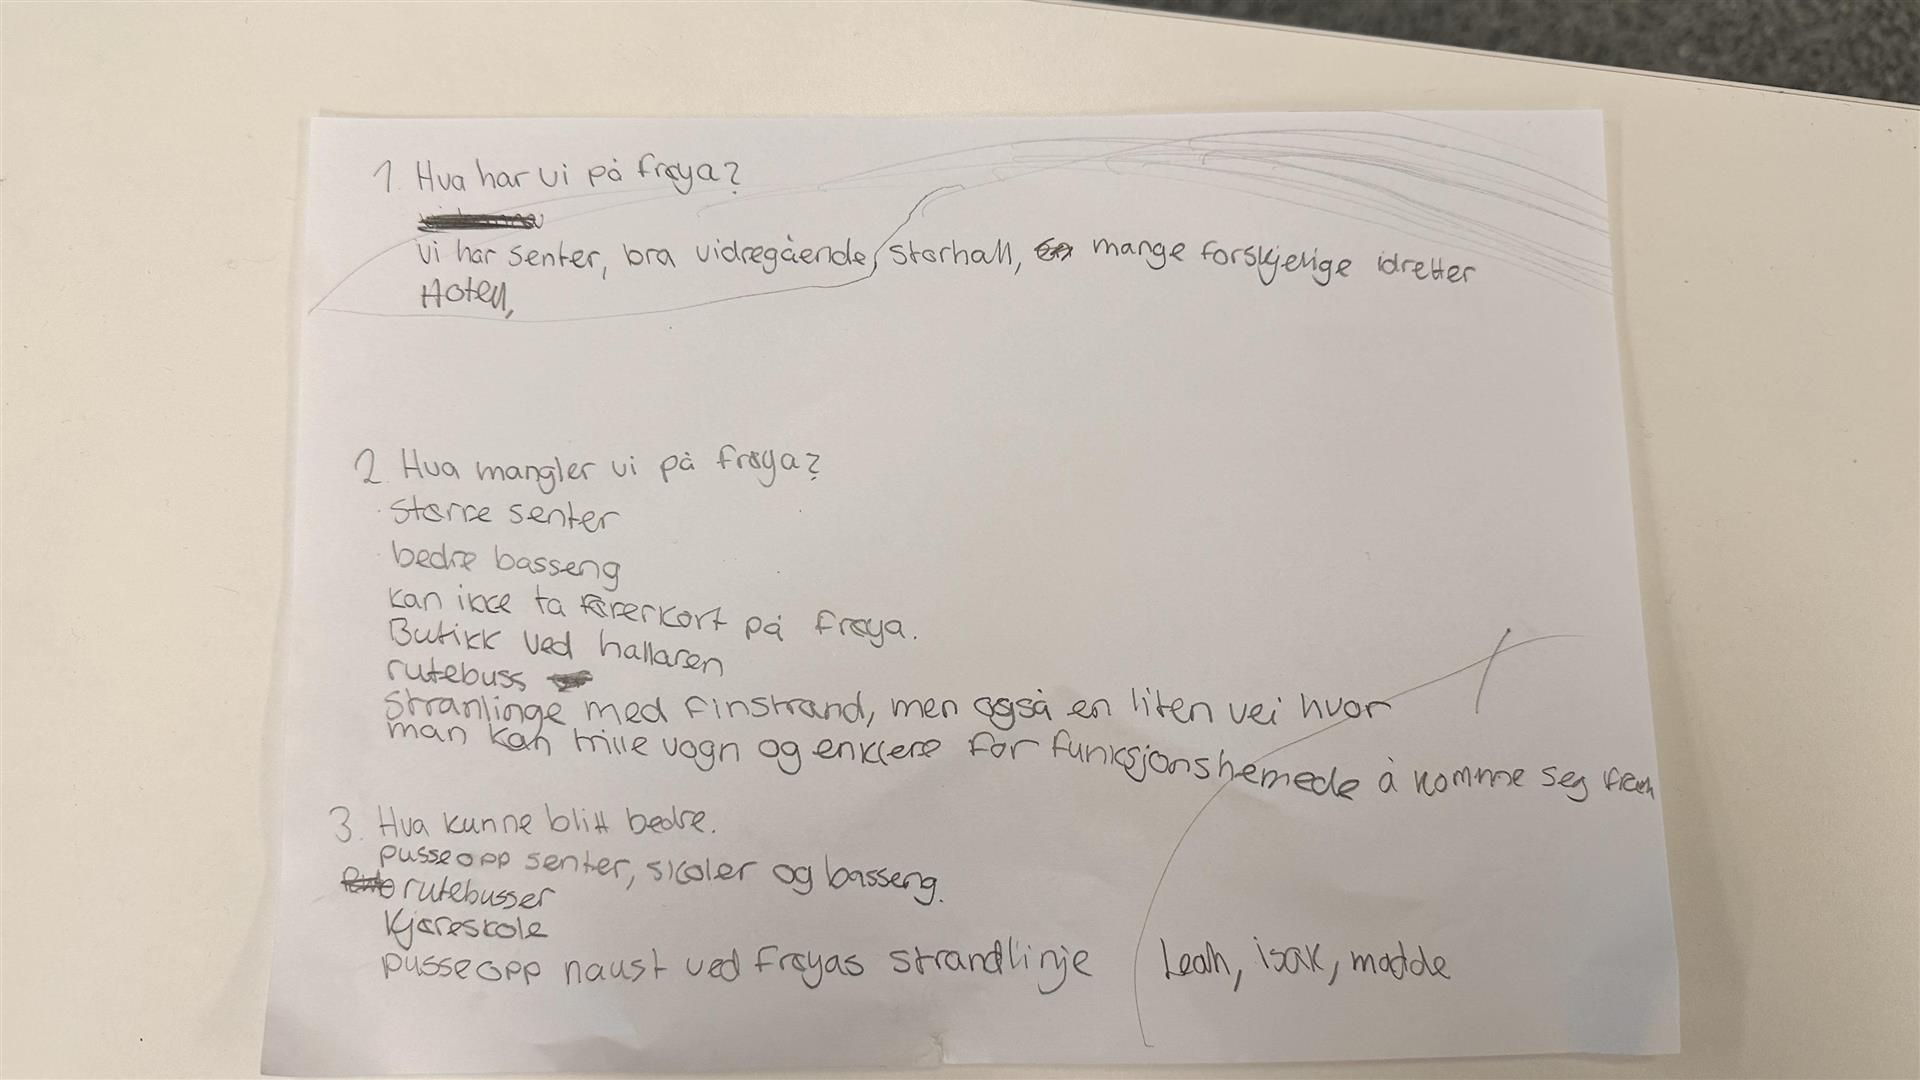 1. Hva har vi på frøya?
Vi har senter, bra vidregående, storhall, mange forskjelige idretter
Hotell,
2. Hva mangler vi på frøya?
større senter
bedre basseng
kan ikke ta førerkort på frøya.
Butikk ved hallaren
rutebuss
stranlinge med finstrand, men også en liten vei hvor
man kan trille vogn og enklere for funksjonshemede å komme seg frem
3. Hva kunne blitt bedre.
pusse opp senter, skoler og basseng.
rutebusser
kjøreskole
pusse opp naust ved frøyas strandlinje
Leah, isak, madde